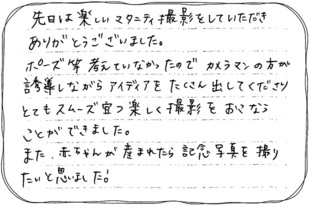 先日は楽しいマタニティ撮影をしていただき
ありがとうございました。
ポーズ等考えていなかったので カメラマンの方が
誘導しながら アイディアを たくさん 出してくださり
とてもスムーズ且つ楽しく撮影を おこなう
ことができました。
また、赤ちゃんが 産まれたら 記念写真を撮り
たいと思いました!